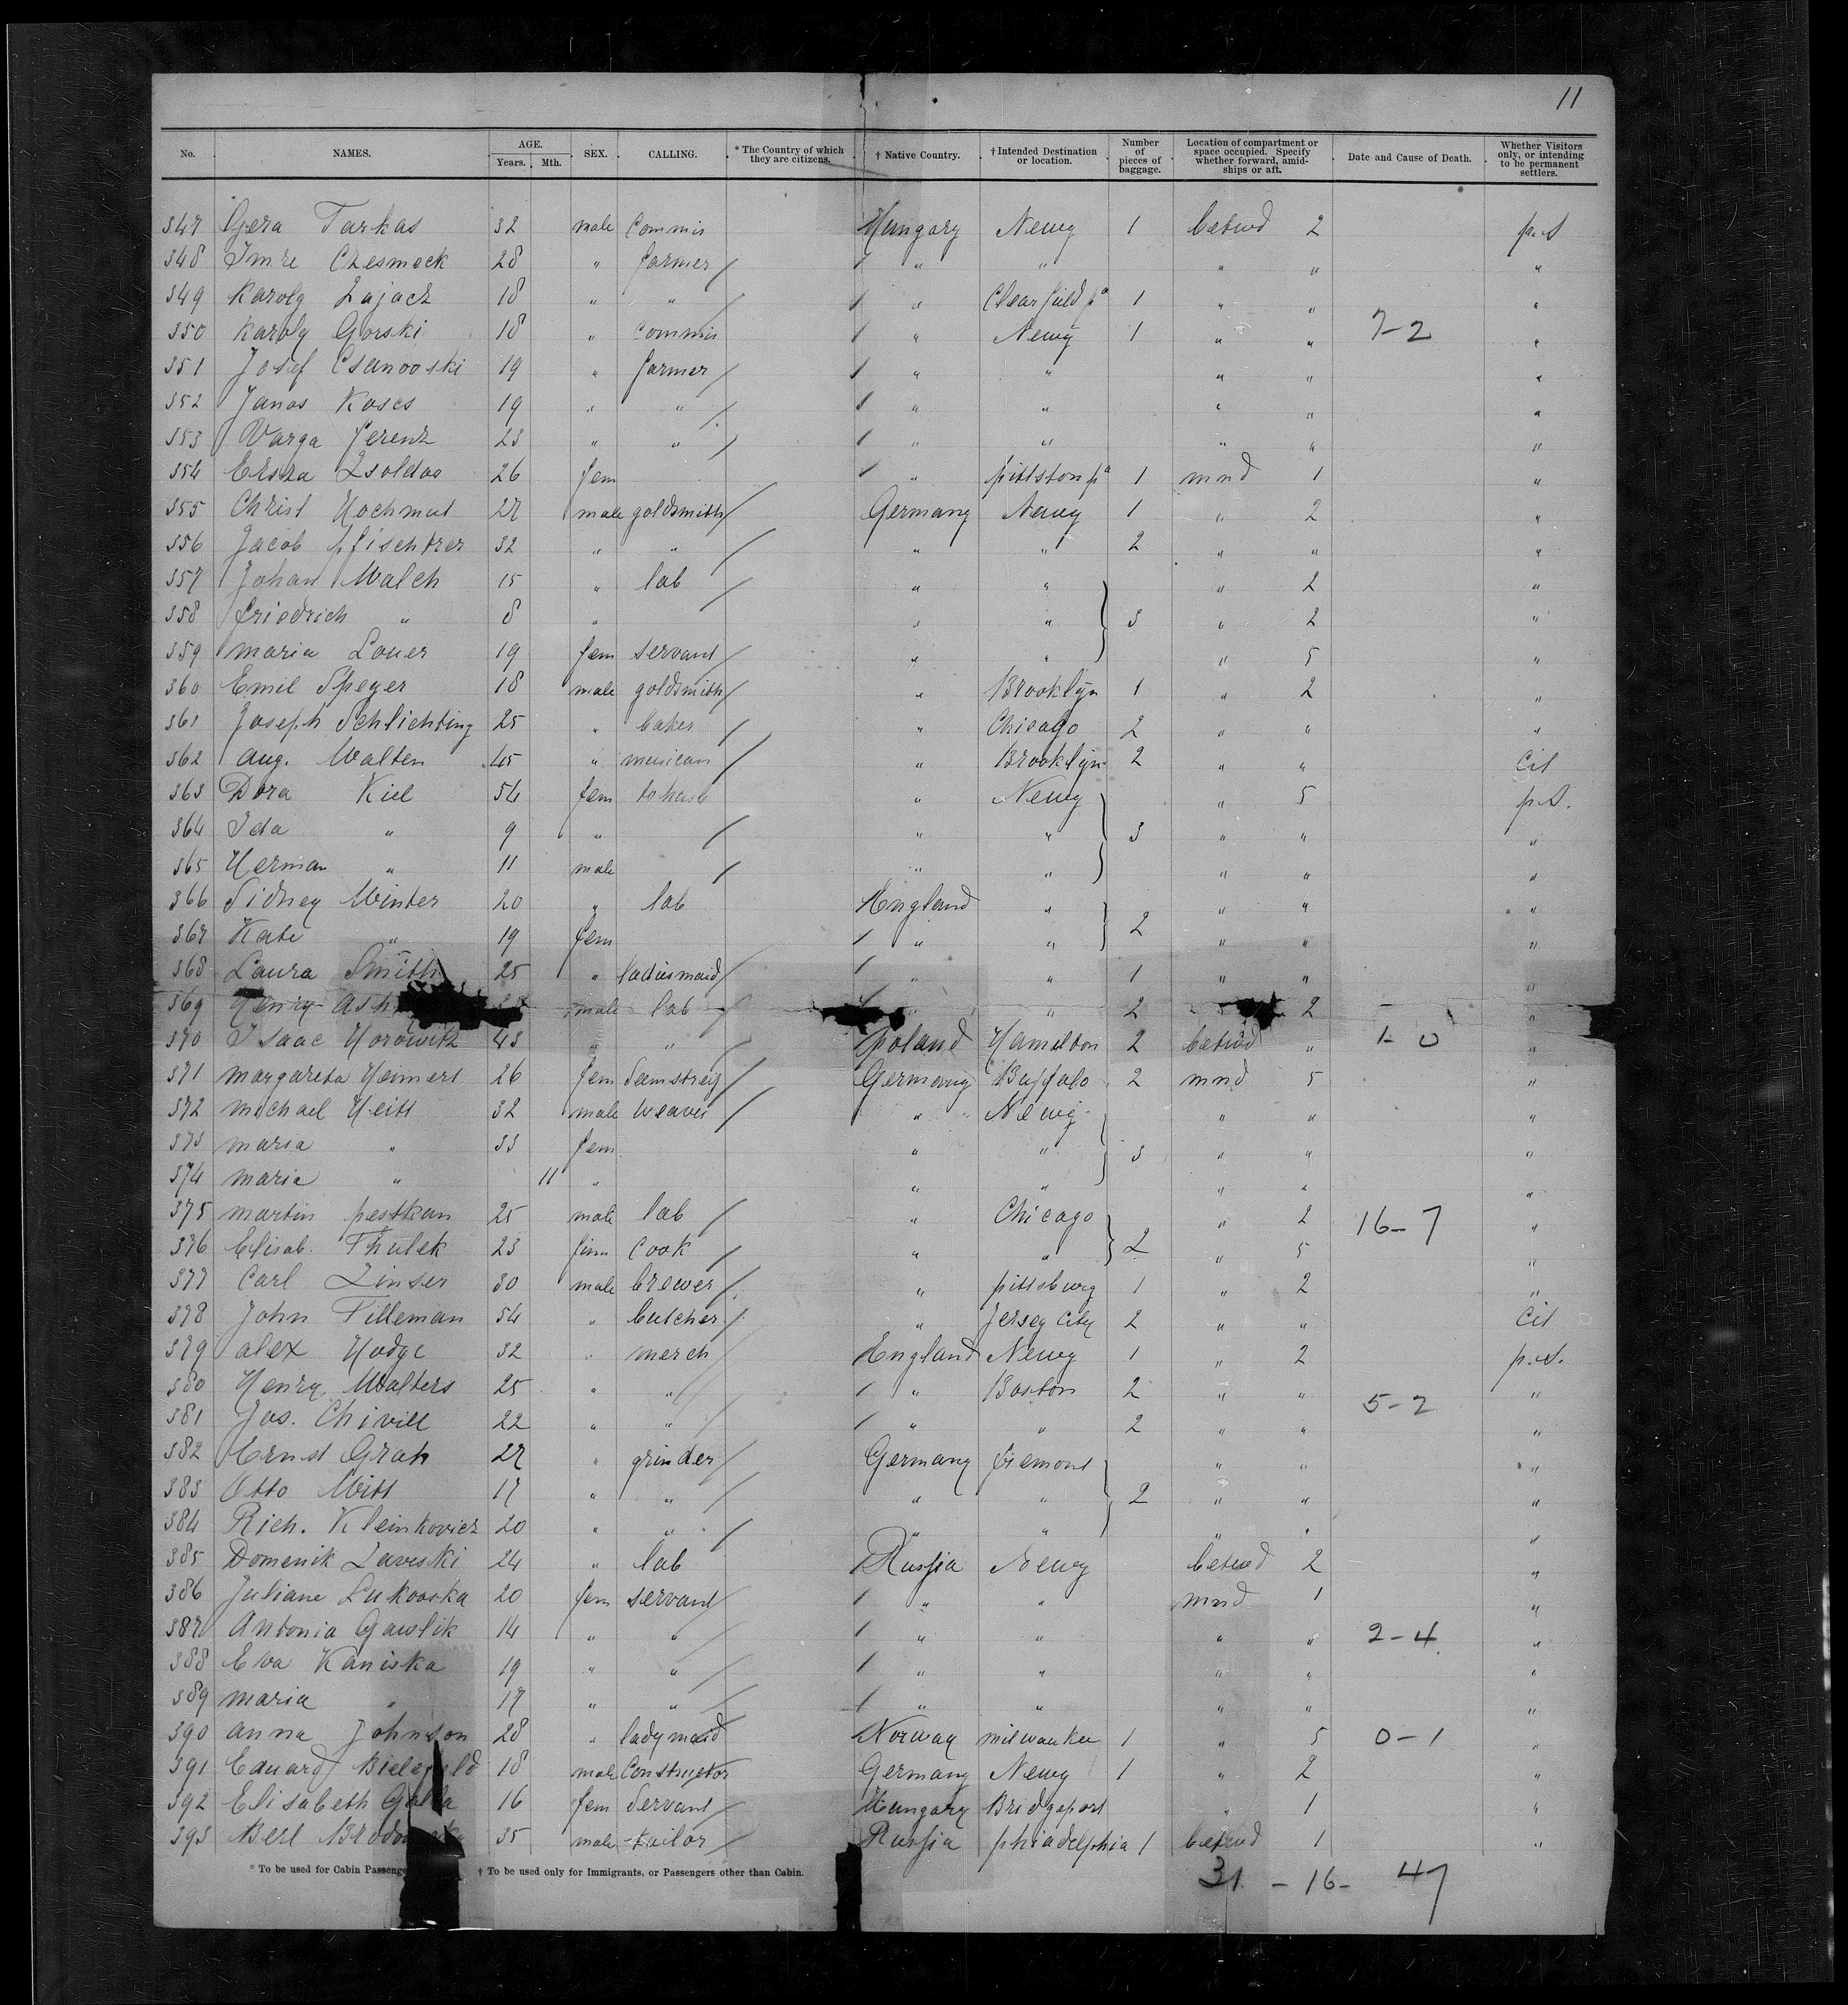 11
No. NAMES. AGE. Years. Mth. SEX. CALLING. * The Country of which they are citizens. † Native Country. † Intended Destination or location. Number of pieces of baggage. Location of compartment or space occupied. Specify whether forward, amid-ships or aft. Date and Cause of Death. Whether Visitors only, or intending to be permanent settlers.
347 Gera Tarkas 32 male Commis Hungary Newy 1 betwd 2 p.S
348 Imre Czesmeck 28 " farmer / " " " " "
349 Karoly Zajacz 18 " " / " Clearfield pa 1 " " "
350 Karoly Gorski 18 " commis " Newy 1 " " 7-2 "
351 Josef Csanovski 19 " farmer / " " " " "
352 Janos Koscs 19 " " / " " " " "
353 Varga Ferenz 23 " " / " " " " "
354 Ersza Zsoldas 26 fem " pittston pa 1 mnd 1 "
355 Christ Hochmut 27 male goldsmith / Germany Newy 1 " 2 "
356 Jacob pfischtrer 32 " " / " " 2 " " "
357 Johan Walch 15 " lab / " " " 2 "
358 friedrich " 8 " " " 3 " 2 "
359 maria Louer 19 fem servant / " " " 5 "
360 Emil Speyer 18 male goldsmith / " Brooklyn 1 " 2 "
361 Joseph Schlichting 25 " baker / " Chicago 2 " " "
362 Aug. Walten 45 " musician / " Brooklyn 2 " " Cit
363 Dora Kiel 54 fem " Newy " 5 p.S.
364 Ida " 9 " / " " 3 " " "
365 Herman " 11 male / " " " " "
366 Sidney Winter 20 " lab England " " " "
367 Kate " 19 fem " " 2 " " "
368 Laura Smith 25 " ladiesmaid / " " 1 " " "
369 Henry Ash male lab / " " 2 2 "
370 Isaac Horowitz 43 " " / Poland Hamilton 2 betwd " 1-0 "
371 margareta Heimerl 26 fem Seamstreß / Germany Buffalo 2 mnd 5 "
372 michael Heitt 32 male weaver / " Newy " " "
373 maria " 33 fem " " 3 " " "
374 maria " 11 " " " " " "
375 martin pestkan 25 male lab / " Chicago " 2 16-7 "
376 Elisab. Thulek 23 fem cook / " " 2 " 5 "
377 Carl Zinser 30 male brewer / " pittsburg 1 " 2 "
378 John Tilleman 54 " butcher / " Jersey City 2 " " Cit
379 alex Hodge 32 " merch / England Newy 1 " 2 p.S.
380 Henry Walters 25 " " / " Boston 2 " " 5-2 "
381 Jos. Chivill 22 " " / " " 2 " " "
382 Ernst Grah 27 " grinder / Germany fremont " " "
383 Otto Witt 17 " " / " " 2 " " "
384 Rich. Kleinkovicz 20 " " / " " " " "
385 Domenik Laveski 24 " lab Russia Newy betwd 2 "
386 Juliane Lukovska 20 fem servant / " " mnd 1 "
387 Antonia Gawlik 14 " " / " " " " 2-4 "
388 Eva Kaniska 19 " " / " " " " "
389 maria " 17 " " / " " " " "
390 anna Johnson 28 " ladymaid Norway milwaukee 1 " 5 0-1 "
391 Eduard Bielefeld 18 male Constructor Germany Newy 1 " 2 "
392 Elisabeth Galla 16 fem Servant / Hungary Bridgeport " 1 "
393 Beil 35 male tailor / Russia phiadelphia 1 betwd 1 "
* To be used for Cabin Passenge † To be used only for Immigrants, or Passengers other than Cabin.
31 - 16 - 47